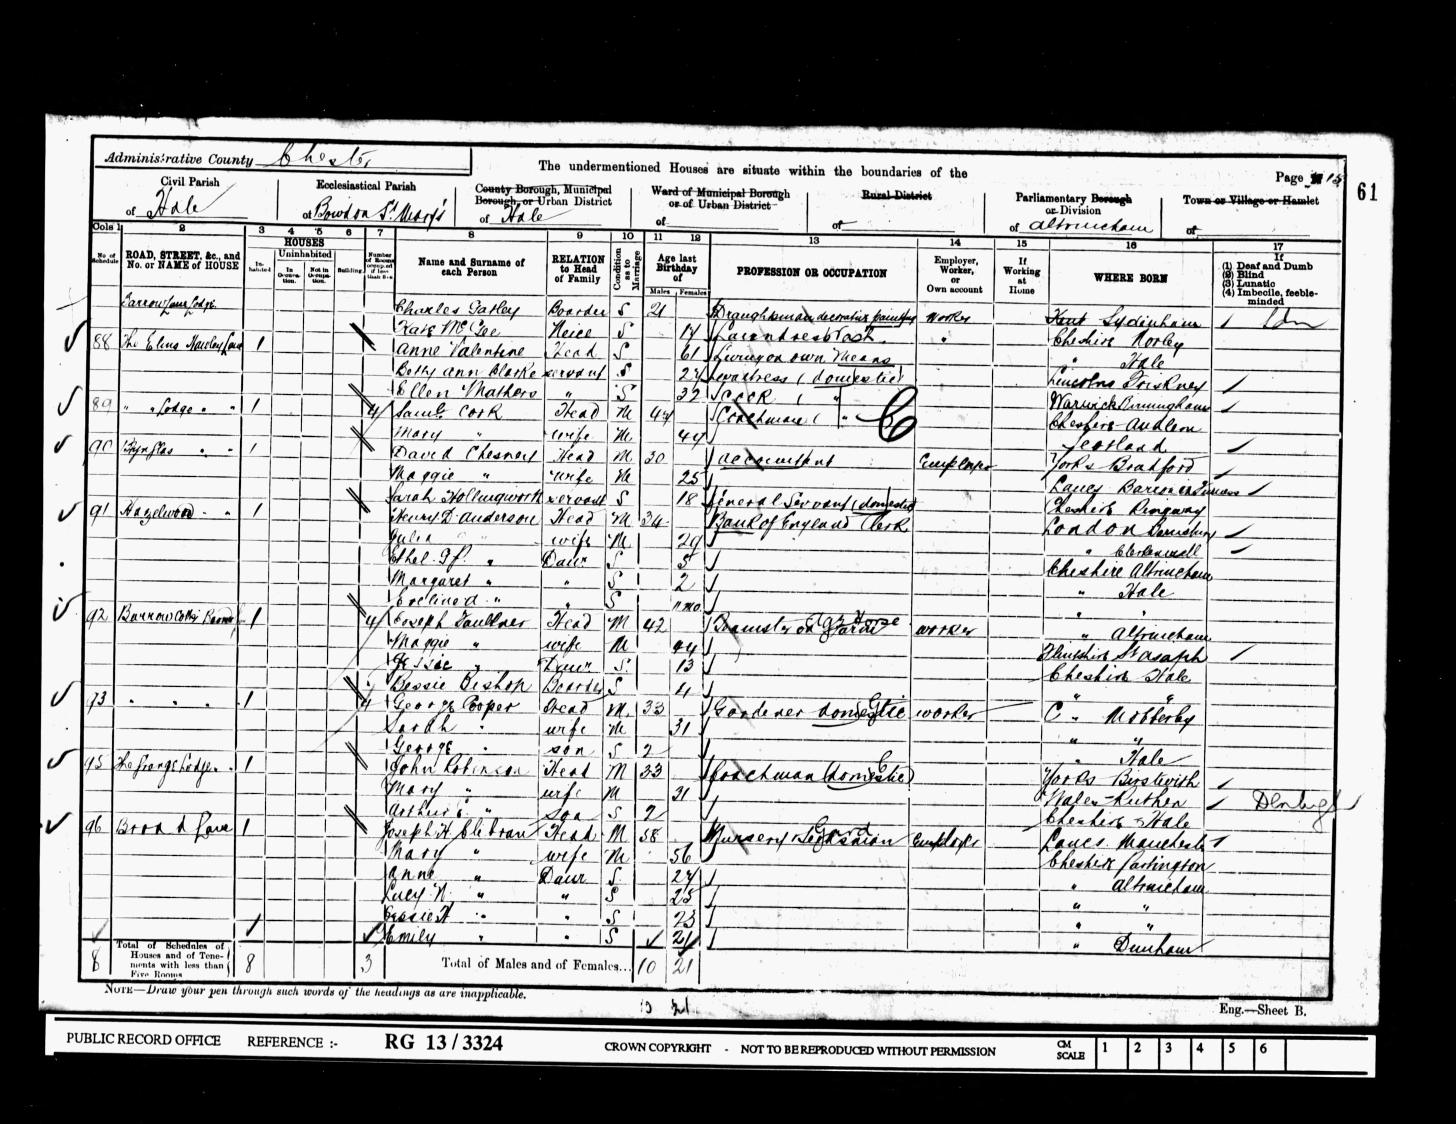 Administrative County Chester
The undermentioned Houses are situate within the boundaries of the
Page 15
61
Civil Parish
of Hale
Ecclesiastical Parish
of Bowdon St Mary's
County Borough, Municipal Borough, or Urban District
of Hale
Ward of Municipal Borough or of Urban District
of
Rural District
of
Parliamentary Borough or Division
of Altrincham
Town or Village or Hamlet
of
Cols 1 2 3 4 5 6 7 8 9 10 11 12 13 14 15 16 17
No. of Schedule
ROAD, STREET, &c., and No. or NAME of HOUSE
HOUSES
Inhabited
Uninhabited
In Occupation.
Not in Occupation.
Building
Number of Rooms occupied if less than five
Name and Surname of each Person
RELATION to Head of Family
Condition as to Marriage
Age last Birthday of
Males Females
PROFESSION OR OCCUPATION
Employer, Worker, or Own account
If Working at Home
WHERE BORN
If
(1) Deaf and Dumb
(2) Blind
(3) Lunatic
(4) Imbecile, feeble-minded
Charles Gatley Boarder S 21 Draughtsman decorative painting Worker Kent Sydenham
Kate McGee Neice S 17 Laundress Wash " Cheshire Norley
88 The Elms 1 Anne Valentine Head S 61 Living on own Means " Hale
Betty Ann Clarke servant S 27 waitress (domestic) Lincolns Friskney
Ellen Mathers " S 32 Cook ( " Warwick Birmingham
89 " " Lodge " " 1 4 Saml Cook Head M 47 Coachman ( " Cheshire Audlem
Mary " wife M 44 Scotland
90 " " 1 David Chesney Head M 30 accountant Employer Yorks Bradford
Maggie " wife M 25 Lancs Barrow in Furness
Sarah Hollingworth servant S 18 General Servant (domestic) Cheshire Ringway
91 Hazelwood - " 1 Henry D Anderson Head M 34 Bank of England Clerk London
Julia " wife M 29 " Clerkenwell
Ethel " Daur S 5 Cheshire Altrincham
Margaret " " S 2 " Hale
" " S 11 mo " "
92 1 4 Joseph Faulkner Head M 42 Teamster on Farm worker " Altrincham
Maggie " wife M 44 Flintshire St Asaph
Jessie " Daur S 13 Cheshire Hale
Bessie Bishop Boarder S 4 " "
93 " " " 1 4 George Cooper Head M 33 Gardener domestic worker " Mobberley
Sarah " wife M 31 " "
George " son S 2 " Hale
95 The Grange Lodge " 1 John Robinson Head M 33 Coachman (domestic) Yorks
Mary " wife M 31 Wales Ruthin Denbigh
Arthur " son S 2 Cheshire Hale
96 Broad Lane 1 Joseph H Clibran Head M 58 Nursery & Seedsman Employer Lancs. Manchester
Mary " wife M 56 Cheshire Partington
Anne " Daur S 27 " Altrincham
Lucy N. " " S 25 " "
Bessie H " " S 23 " "
Emily " " S 21 " Dunham
8
Total of Schedules of Houses and of Tenements with less than Five Rooms
8 3
Total of Males and of Females... 10 21
NOTE—Draw your pen through such words of the headings as are inapplicable.
Eng.—Sheet B.
PUBLIC RECORD OFFICE REFERENCE :- RG 13 / 3324 CROWN COPYRIGHT - NOT TO BE REPRODUCED WITHOUT PERMISSION CM SCALE 1 2 3 4 5 6